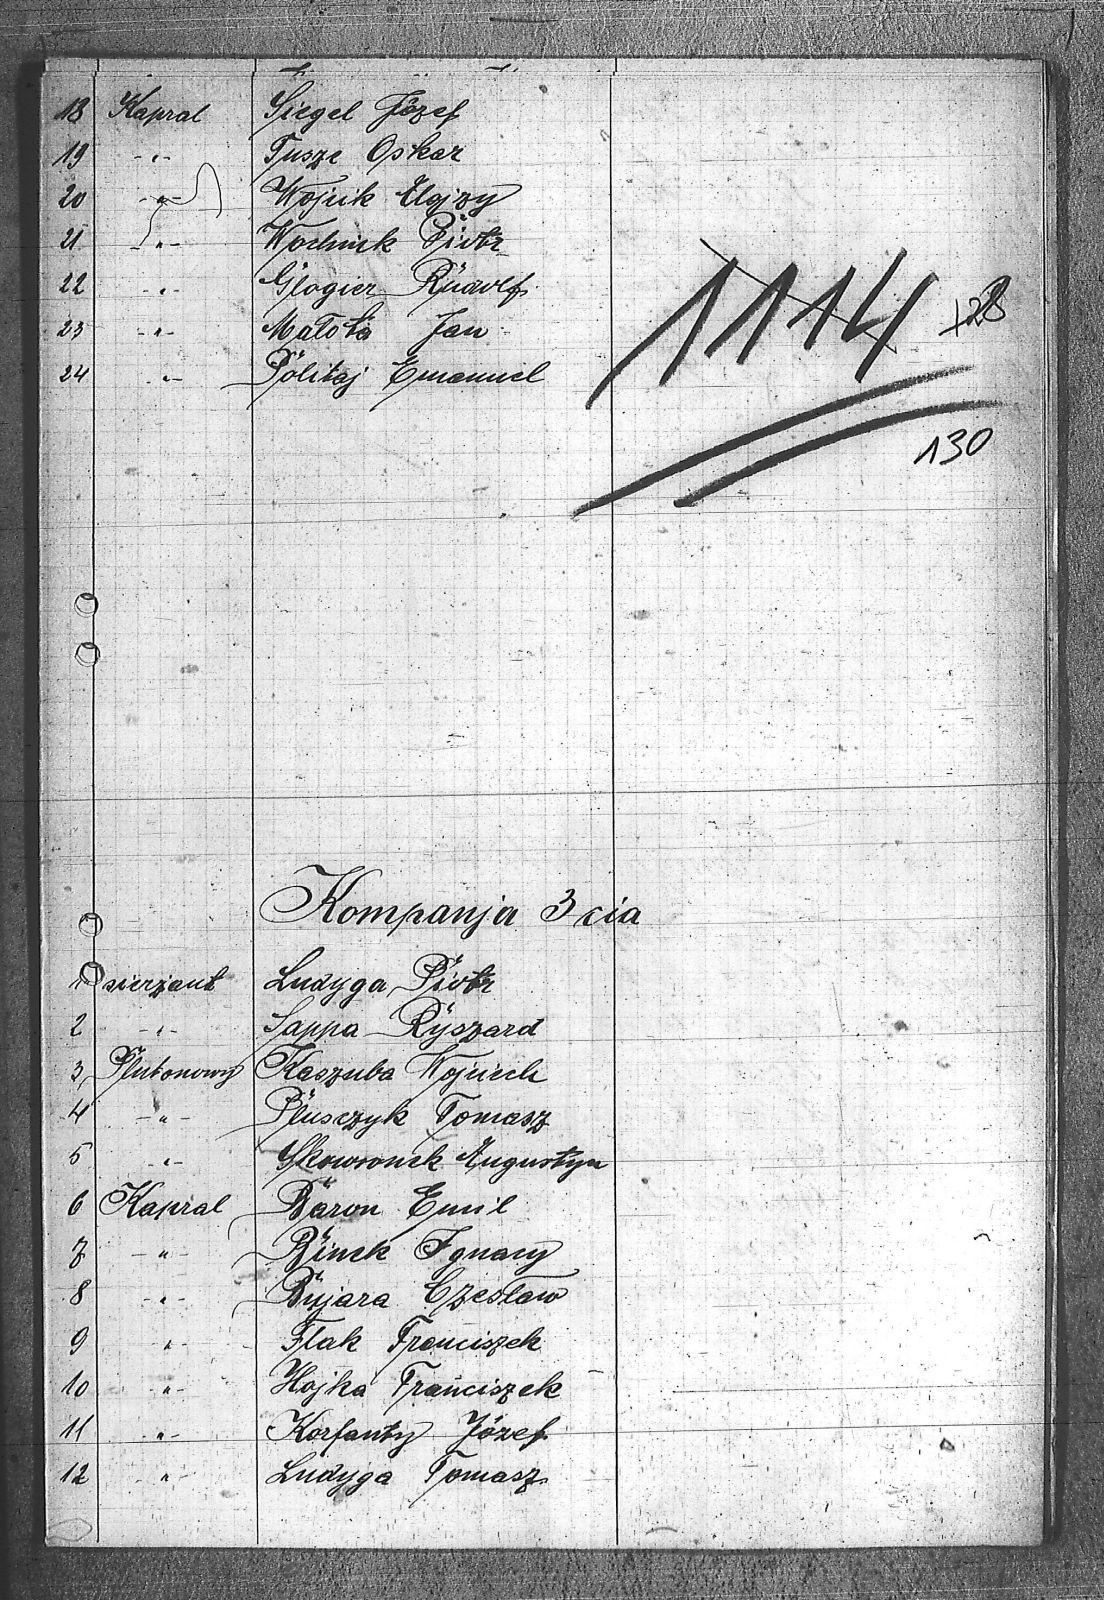 18 Kapral Siegel Józef
19 -"- Tusze Oskar
20 -"- Wojcik Alojzy
21 -"- Wochnik Piotr
22 -"- Glogier Rudolf
23 -"- Małota Jan
24 -"- Politaj Emanuel
1114 +28
130
Kompanja 3cia
1 sierżant Ludyga Piotr
2 -"- Sappa Ryszard
3, Plutonowy Kaszuba Wojciech
4 -"- Pluszczyk Tomasz
5 -"- Skowronek Augustyn
6 Kapral Baron Emil
7 -"- Binek Ignacy
8 -"- Bujara Czesław
9 " Flak Franciszek
10 -"- Hojka Franciszek
11 -"- Korfanty Józef
12 " Ludyga Tomasz